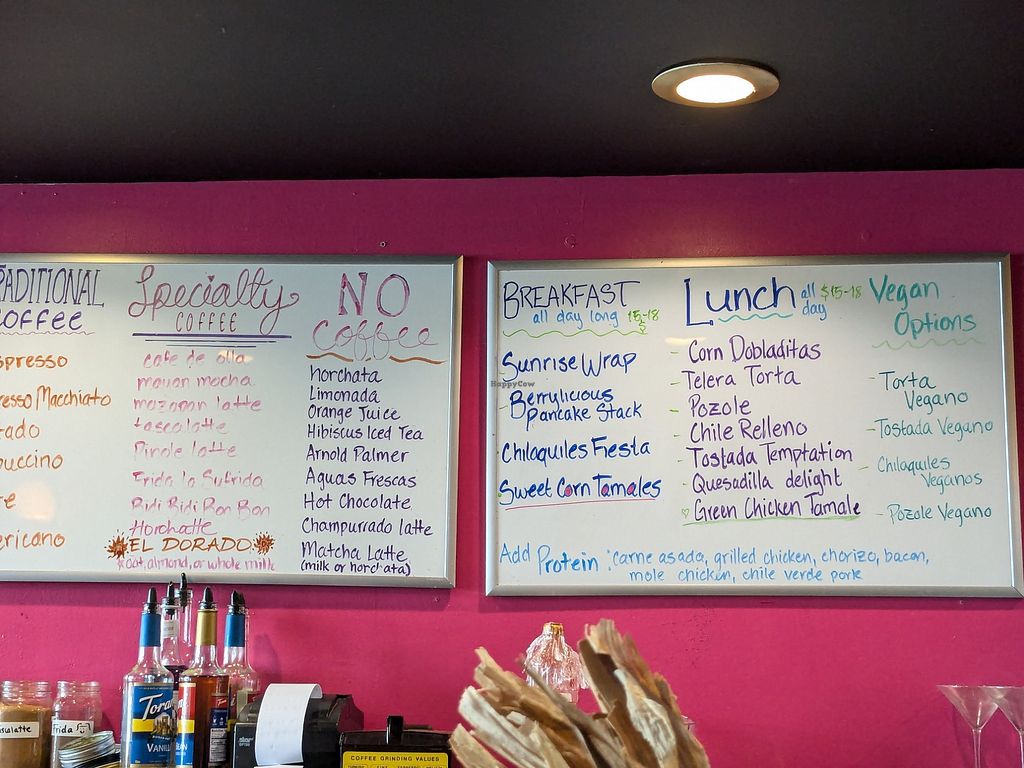 RADITIONAL
Coffee
spresso
resso Macchiato
tado
puccino
ericano
Specialty
COFFEE
cafe de olla
mayan mocha
mazapan latte
Pinole latte
Frida la Sufrida
Bidi Bidi Bon Bon
Horchatte
EL DORADO
*oat, almond, or whole milk
NO
Coffee
horchata
Limonada
Orange Juice
Hibiscus Iced Tea
Arnold Palmer
Aguas Frescas
Hot Chocolate
Champurrado latte
Matcha Latte
(milk or horchata)
BREAKFAST
all day long 15-18
$
Sunrise Wrap
- Berrylicious
Pancake Stack
- Chilaquiles Fiesta
Sweet Corn Tamales
HappyCow
Lunch all day $15-18
- Corn Dobladitas
- Telera Torta
- Pozole
- Chile Relleno
- Tostada Temptation
- Quesadilla delight
Green Chicken Tamale
Vegan
Options
- Torta
Vegano
- Tostada Vegano
- Chilaquiles
Veganos
- Pozole Vegano
Add Protein: carne asada, grilled chicken, chorizo, bacon,
mole chicken, chile verde pork
Torani
VANILLA
Frida
COFFEE GRINDING VALUES